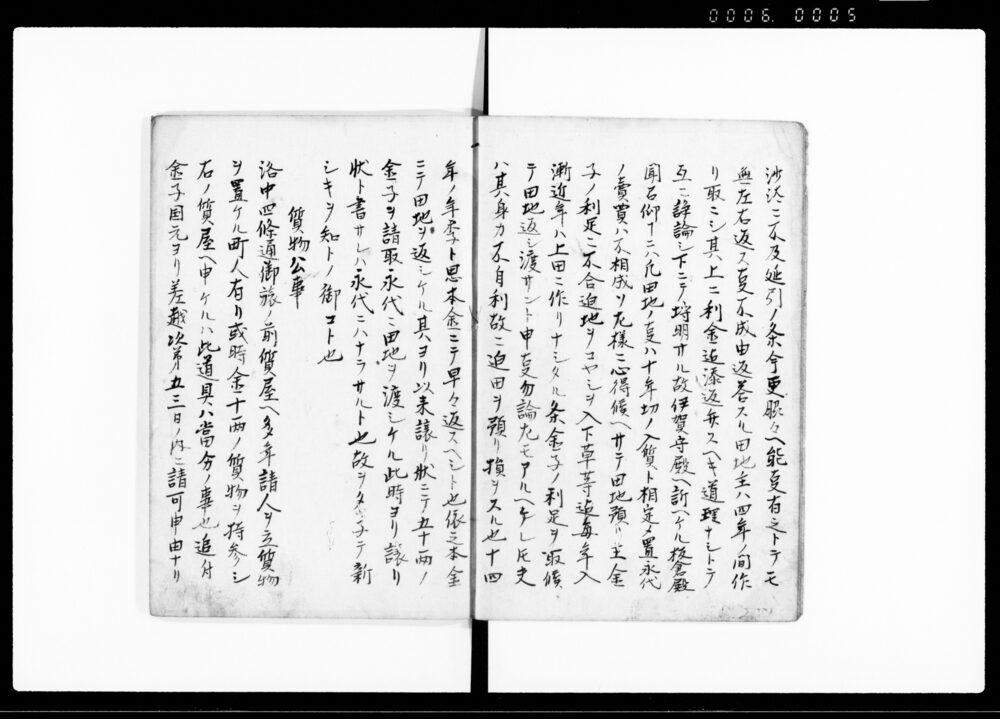 0006. 0005
沙汰ニ不及延引ノ条今更賑々ヘ能夏有之トテモ
無左右返ス夏不成由返答スル田地主ハ四年ノ間作
リ取ニシ其上ニ利金迄添返弁スヘキ道理ナシトテ
互ニ諍論シ下ニテ埒明サル故伊賀守殿ヘ訴ヘケル板倉殿
聞石仰ケニハ凡田地ノ夏ハ十年切ノ入質ト相定メ置永代
ノ賣買ハ不相成ソ左様ニ心得候ヘサテ田地預リ主金
子ノ利足ニ不合迫地ヲコヤシヲ入下草等迄毎年入
漸近年ハ上田ニ作リナシタル条金子ノ利足ヲ取候
テ田地返シ渡サント申夏勿論尤モアルヘケレ𪜈夫
ハ其身力不自利故ニ迫田ヲ預リ損ヲスル也十四
年ノ年季ト思本金ニテ早々返スヘシト也依之本金
ニテ田地ヲ返シケル其ヨリ以来譲リ状ニテ五十両ノ
金子ヲ請取永代ニ田地ヲ渡シケル此時ヨリ譲リ
状ト書サレハ永代ニハナラサルト也故ヲタツ子テ新
シキヲ知トノ御コト也
質物公事
洛中四條通御旅ノ前質屋ヘ多年請人ヲ立質物
ヲ置ケル町人有リ或時金二十両ノ質物ヲ持参シ
右ノ質屋ヘ申ケルハ此道具ハ當分ノ事也追付
金子国元ヨリ差越次第五三日ノ内ニ請可申由ナリ